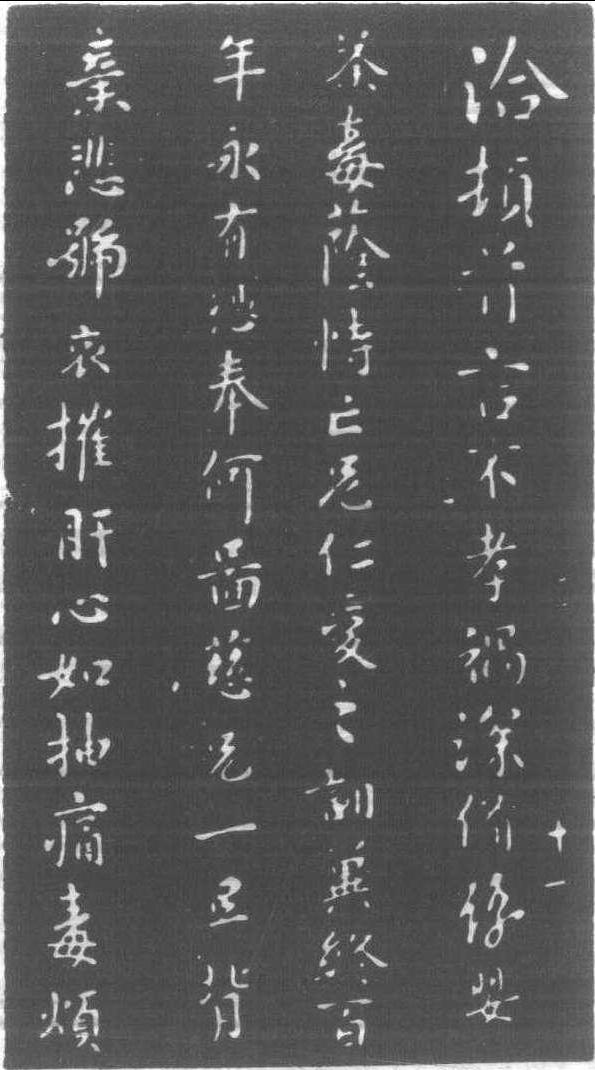 洽頓首言不孝禍深備豫嬰
十一
荼毒蔭恃亡兄仁愛之訓冀終百
年永有憑奉何圖慈兄一旦背
棄悲號哀摧肝心如抽痛毒煩